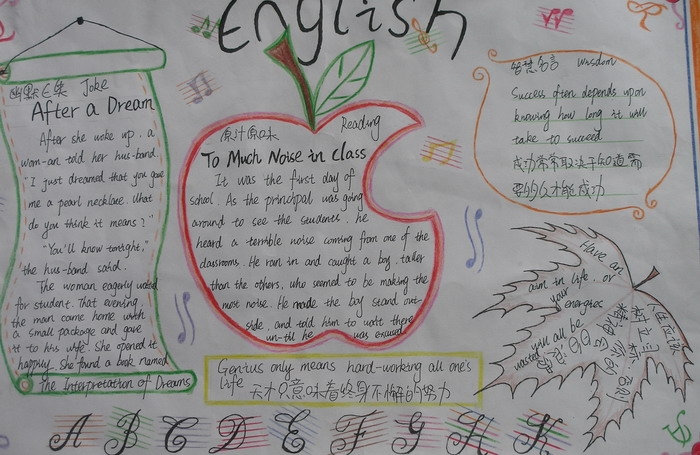 English
幽默区集 Joke
After a Dream
After she woke up, a
wom-an told her hus-band.
"I just dreamed that you gave
me a pearl necklace. What
do you think it means?"
"You'll know tonight,"
the hus-band said.
The woman eagerly waited
for student. That evening,
the man came home with
a small package and gave
it to his wife. She opened it
happily. She found a book named
The Interpretation of Dreams
原汁原味 Reading
To Much Noise in Class
It was the first day of
school. As the principal was going
around to see the students, he
heard a terrible noise coming from one of the
classrooms. He ran in and caught a boy, taller
than the others, who seemed to be making the
most noise. He made the boy stand out-
side, and told him to wait there
un-til he was excused
Genius only means hard-working all one's
life
天才只意味着终身不懈的努力
智慧名言 Wisdom
Success often depends upon
knowing how long it will
take to succeed
成功常常取决于知道需
要多久才能成功
Have an
aim in life, or
your energies
will all be
wasted
人生应该
树立目标,否则
精力会
白白
浪费
A B C D E F G H K